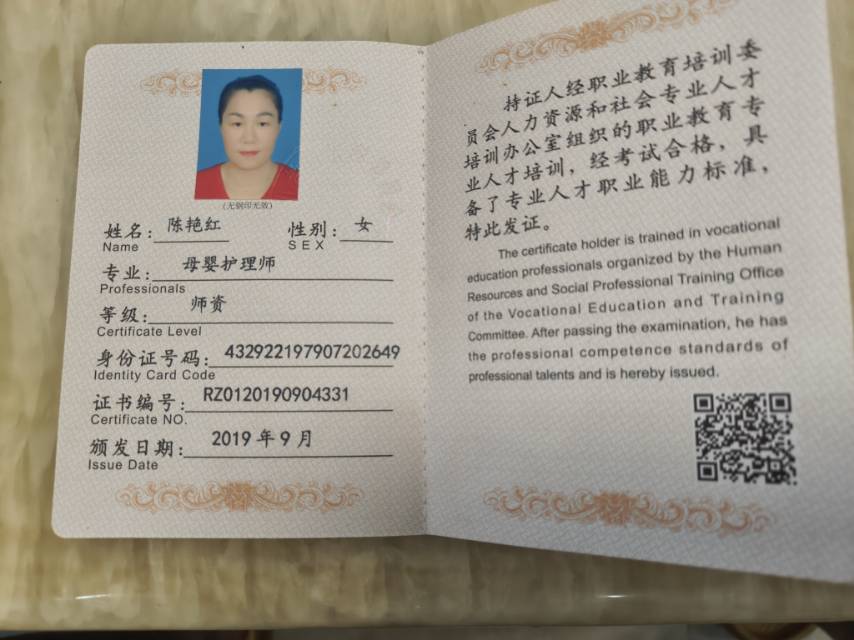 (无钢印无效)
姓名: 陈艳红 性别: 女
Name SEX
专业: 母婴护理师
Professionals
等级: 师资
Certificate Level
身份证号码: 432922197907202649
Identity Card Code
证书编号: RZ0120190904331
Certificate NO.
颁发日期: 2019年9月
Issue Date
持证人经职业教育培训委
员会人力资源和社会专业人才
培训办公室组织的职业教育专
业人才培训，经考试合格，具
备了专业人才职业能力标准，
特此发证。
The certificate holder is trained in vocational
education professionals organized by the Human
Resources and Social Professional Training Office
of the Vocational Education and Training
Committee. After passing the examination, he has
the professional competence standards of
professional talents and is hereby issued.